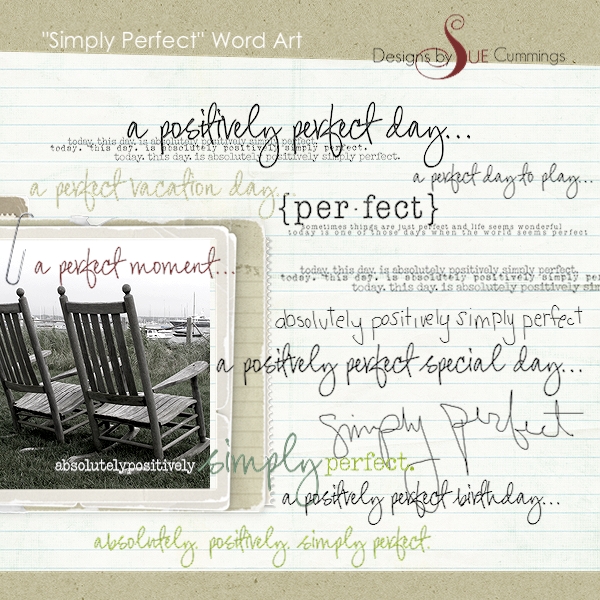 "Simply Perfect" Word Art
Designs by Sue Cummings
a positively perfect day...
today. this day. is absolutely positively simply perfect.
today. this day. is absolutely positively simply perfect.
today. this day. is absolutely positively simply perfect.
a perfect vacation day...
a perfect day to play...
{per·fect}
sometimes things are just perfect and life seems wonderful
today is one of those days when the world seems perfect
a perfect moment...
today. this day. is absolutely positively simply perfect.
today. this day. is absolutely positively simply perfect.
today. this day. is absolutely positively sim
absolutely positively simply perfect
a positively perfect special day...
simply perfect
absolutelypositively simply perfect.
a positively perfect birthday...
absolutely. positively. simply perfect.